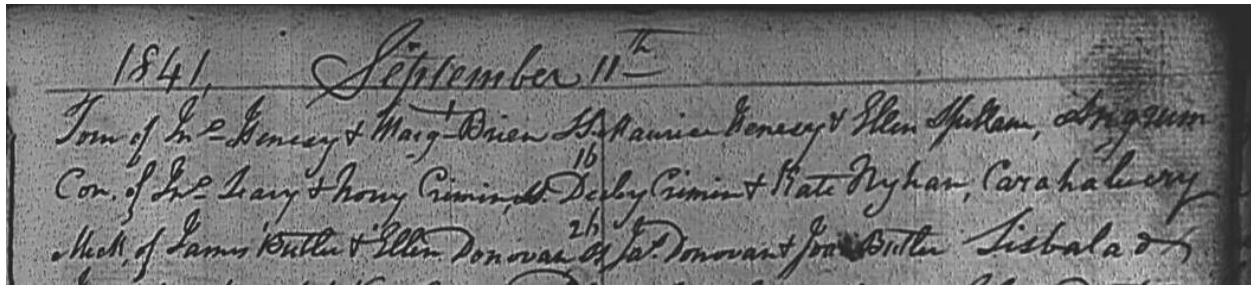 1841, September 11th
Tom of Jno Henesy & Marg Brien Ss Maurice Henesy & Ellen
16
Con. of Jno Leary & Nony Crimin, Ss. Derby Crimin & Kate Nyhan, Carahaluery
26
Mick, of James Butler & Ellen Donovan Ss Jas. Donovan & Joa Butler Lisbalad